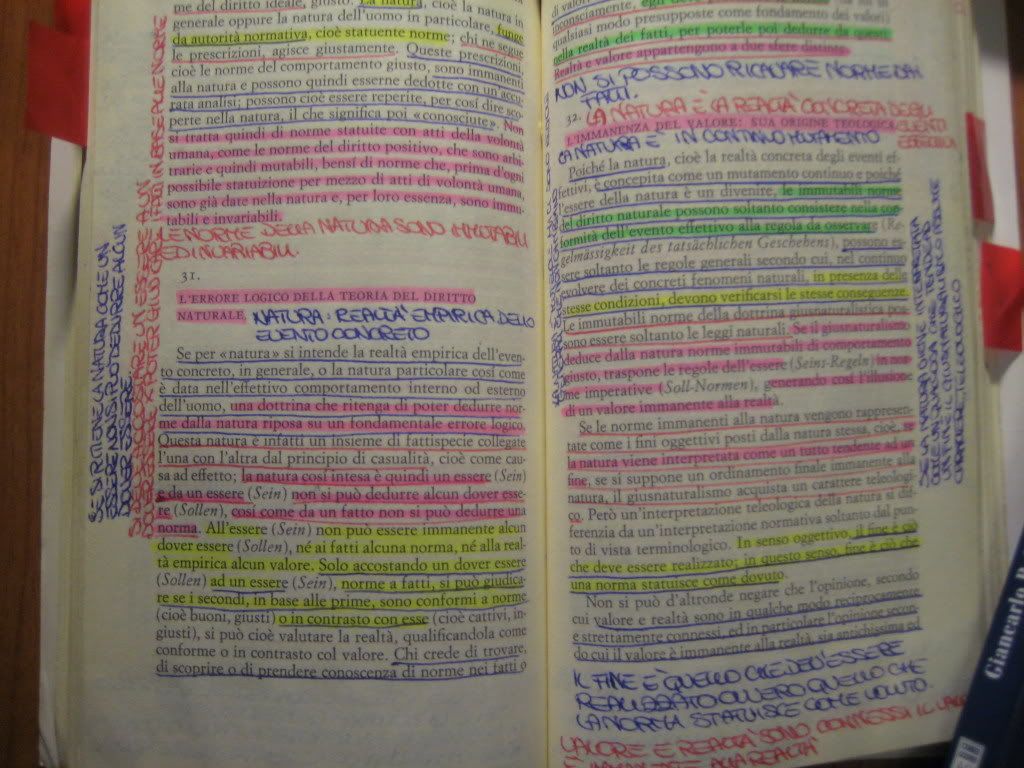 me del diritto ideale, giusto. La natura, cioè la natura in
generale oppure la natura dell'uomo in particolare, funge
da autorità normativa, cioè statuente norme; chi ne segue
le prescrizioni, agisce giustamente. Queste prescrizioni,
cioè le norme del comportamento giusto, sono immanenti
alla natura e possono quindi esserne dedotte con un'accu
rata analisi; possono cioè essere reperite, per cosí dire sco
perte nella natura, il che significa poi «conosciute». Non
si tratta quindi di norme statuite con atti della volontà
umana, come le norme del diritto positivo, che sono arbi
trarie e quindi mutabili, bensí di norme che, prima d'ogni
possibile statuizione per mezzo di atti di volontà umana,
sono già date nella natura e, per loro essenza, sono immu
tabili e invariabili.
LE NORME DELLA NATURA SONO IMMUTABILI
ED INVARIABILI.
31.
L'ERRORE LOGICO DELLA TEORIA DEL DIRITTO
NATURALE. NATURA: REALTÀ EMPIRICA DELLO
EVENTO CONCRETO
Se per «natura» si intende la realtà empirica dell'even
to concreto, in generale, o la natura particolare cosí come
è data nell'effettivo comportamento interno od esterno
dell'uomo, una dottrina che ritenga di poter dedurre nor
me dalla natura riposa su un fondamentale errore logico.
Questa natura è infatti un insieme di fattispecie collegate
l'una con l'altra dal principio di casualità, cioè come cau
sa ad effetto; la natura cosí intesa è quindi un essere (Sein)
e da un essere (Sein) non si può dedurre alcun dover esse
re (Sollen), cosí come da un fatto non si può dedurre una
norma. All'essere (Sein) non può essere immanente alcun
dover essere (Sollen), né ai fatti alcuna norma, né alla real
tà empirica alcun valore. Solo accostando un dover essere
(Sollen) ad un essere (Sein), norme a fatti, si può giudica
re se i secondi, in base alle prime, sono conformi a norme
(cioè buoni, giusti) o in contrasto con esse (cioè cattivi, in-
giusti), si può cioè valutare la realtà, qualificandola come
conforme o in contrasto col valore. Chi crede di trovare,
di scoprire o di prendere conoscenza di norme nei fatti o
SE SI RITIENE LA NATURA CHE È UN
ESSERE NON SI PUÒ DEDURRE ALCUN
DOVER ESSERE
di valori
inconsciamente,
qualsiasi modo presupposte come fondamento dei valori)
nella realtà dei fatti, per poterle poi dedurre da questi.
Realtà e valore appartengono a due sfere distinte.
NON SI POSSONO RICAVARE NORME DAI
FATTI.
LA NATURA È LA REALTÀ CONCRETA DEGLI
EVENTI
32.
L'IMMANENZA DEL VALORE: SUA ORIGINE TEOLOGICA
LA NATURA È IN CONTINUO MUTAMENTO
Poiché la natura, cioè la realtà concreta degli eventi ef-
fettivi, è concepita come un mutamento continuo e poiché
l'essere della natura è un divenire, le immutabili norme
del diritto naturale possono soltanto consistere nella con
formità dell'evento effettivo alla regola da osservare (Re-
gelmässigkeit des tatsächlichen Geschehens), possono es
sere soltanto le regole generali secondo cui, nel continuo
evolvere dei concreti fenomeni naturali, in presenza delle
stesse condizioni, devono verificarsi le stesse conseguenze.
Le immutabili norme della dottrina giusnaturalistica pos
sono essere soltanto le leggi naturali. Se il giusnaturalismo
deduce dalla natura norme immutabili di comportamento
giusto, traspone le regole dell'essere (Seins-Regeln) in nor
me imperative (Soll-Normen), generando cosí l'illusione
di un valore immanente alla realtà.
Se le norme immanenti alla natura vengono rappresen-
tate come i fini oggettivi posti dalla natura stessa, cioè, se
la natura viene interpretata come un tutto tendente ad un
fine, se si suppone un ordinamento finale immanente alla
natura, il giusnaturalismo acquista un carattere teleologi-
co. Però un'interpretazione teleologica della natura si dif-
ferenzia da un'interpretazione normativa soltanto dal pun-
to di vista terminologico. In senso oggettivo, il fine è ciò
che deve essere realizzato; in questo senso, fine è ciò che
una norma statuisce come dovuto.
Non si può d'altronde negare che l'opinione, secondo
cui valore e realtà sono in qualche modo reciprocamente
e strettamente connessi, ed in particolare l'opinione secon
do cui il valore è immanente alla realtà, sia antichissima ed
IL FINE È QUELLO CHE DEV'ESSERE
REALIZZATO OVVERO QUELLO CHE
LA NORMA STATUISCE COME VOLUTO.
VALORE E REALTÀ SONO CONNESSI IL VALORE
È IMMANENTE ALLA REALTÀ
SE LA NATURA VIENE INTERPRETATA
COME UN QUALCOSA CHE TENDE AD
UN FINE IL GIUSNATURALISMO ASSUME
CARATTERE TELEOLOGICO
Giancarlo